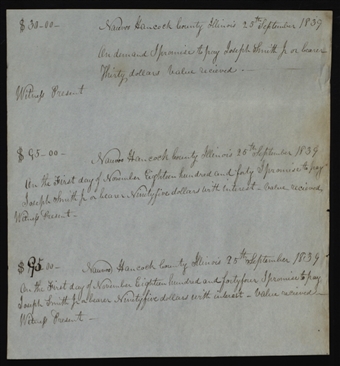 $30-00- Nauvoo Hancock County Illinois 25th September 1839
On demand I promise to pay Joseph Smith Jr or bearer
Thirty, dollars value recieved. -
Witness Present
$95-00- Nauvoo Hancock County Illinois 25th September 1839
On the First day of November Eighteen hundred and forty I promise to pay
Joseph Smith Jr or bearer Ninetyfive dollars with interest - Value recieved
Witness Present -
$95.00- Nauvoo, Hancock County Illinois 25th September 1839
On the First day of November Eighteen hundred and fortyfour I promise to pay
Joseph Smith Jr bearer Ninetyfive dollars with interest - Value recieved -
Witness Present -